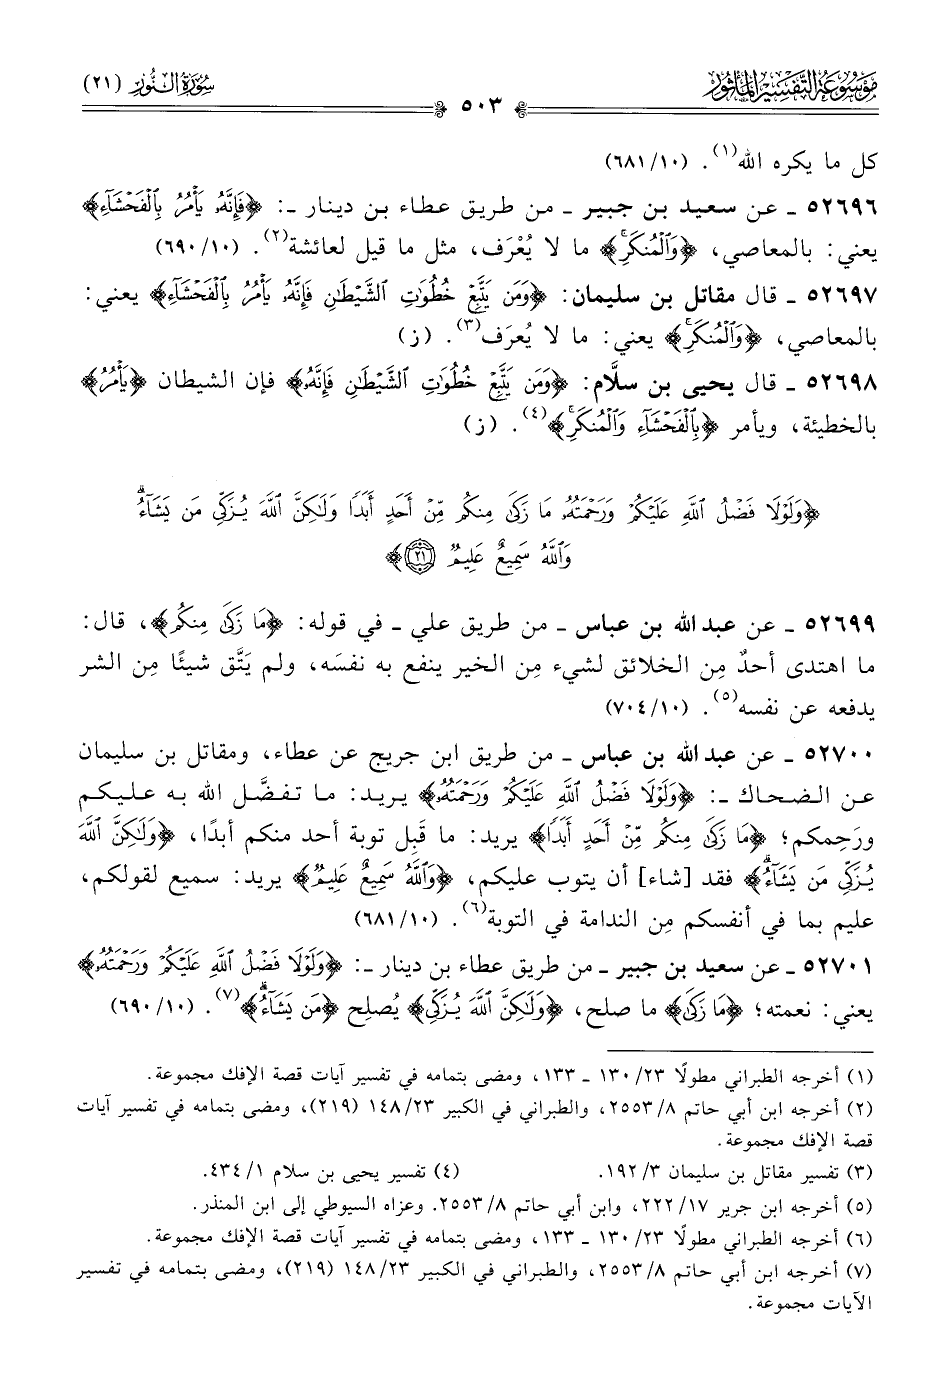 موسوعة التفسير المأثور
سورة النور (٢١)
٥٠٣
كل ما يكره الله(١). (٦٨١/١٠)
٥٢٦٩٦ ـ عن سعيد بن جبير ـ من طريق عطاء بن دينار ـ: ﴿فَإِنَّهُۥ يَأۡمُرُ بِٱلۡفَحۡشَآءِ﴾
يعني: بالمعاصي، ﴿وَٱلۡمُنكَرِۚ﴾ ما لا يُعْرَف، مثل ما قيل لعائشة(٢). (٦٩٠/١٠)
٥٢٦٩٧ ـ قال مقاتل بن سليمان: ﴿وَمَن يَتَّبِعۡ خُطُوَٰتِ ٱلشَّيۡطَٰنِ فَإِنَّهُۥ يَأۡمُرُ بِٱلۡفَحۡشَآءِ﴾ يعني:
بالمعاصي، ﴿وَٱلۡمُنكَرِۚ﴾ يعني: ما لا يُعرَف(٣). (ز)
٥٢٦٩٨ ـ قال يحيى بن سلَّام: ﴿وَمَن يَتَّبِعۡ خُطُوَٰتِ ٱلشَّيۡطَٰنِ فَإِنَّهُۥ﴾ فإن الشيطان ﴿يَأۡمُرُ﴾
بالخطيئة، ويأمر ﴿بِٱلۡفَحۡشَآءِ وَٱلۡمُنكَرِۚ﴾(٤). (ز)
﴿وَلَوۡلَا فَضۡلُ ٱللَّهِ عَلَيۡكُمۡ وَرَحۡمَتُهُۥ مَا زَكَىٰ مِنكُم مِّنۡ أَحَدٍ أَبَدٗا وَلَٰكِنَّ ٱللَّهَ يُزَكِّي مَن يَشَآءُۗ
وَٱللَّهُ سَمِيعٌ عَلِيمٞ ٢١﴾
٥٢٦٩٩ ـ عن عبد الله بن عباس ـ من طريق علي ـ في قوله: ﴿مَا زَكَىٰ مِنكُم﴾، قال:
ما اهتدى أحدٌ مِن الخلائق لشيء مِن الخير ينفع به نفسَه، ولم يَتَّق شيئًا مِن الشر
يدفعه عن نفسه(٥). (٧٠٤/١٠)
٥٢٧٠٠ ـ عن عبد الله بن عباس ـ من طريق ابن جريج عن عطاء، ومقاتل بن سليمان
عن الضحاك ـ: ﴿وَلَوۡلَا فَضۡلُ ٱللَّهِ عَلَيۡكُمۡ وَرَحۡمَتُهُۥ﴾ يريد: ما تفضَّل الله به عليكم
ورَحِمكم؛ ﴿مَا زَكَىٰ مِنكُم مِّنۡ أَحَدٍ أَبَدٗا﴾ يريد: ما قَبِل توبة أحد منكم أبدًا، ﴿وَلَٰكِنَّ ٱللَّهَ
يُزَكِّي مَن يَشَآءُۗ﴾ فقد [شاء] أن يتوب عليكم، ﴿وَٱللَّهُ سَمِيعٌ عَلِيمٞ﴾ يريد: سميع لقولكم،
عليم بما في أنفسكم مِن الندامة في التوبة(٦). (٦٨١/١٠)
٥٢٧٠١ ـ عن سعيد بن جبير ـ من طريق عطاء بن دينار ـ: ﴿وَلَوۡلَا فَضۡلُ ٱللَّهِ عَلَيۡكُمۡ وَرَحۡمَتُهُۥ﴾
يعني: نعمته؛ ﴿مَا زَكَىٰ﴾ ما صلح، ﴿وَلَٰكِنَّ ٱللَّهَ يُزَكِّي﴾ يُصلِح ﴿مَن يَشَآءُۗ﴾(٧). (٦٩٠/١٠)
(١) أخرجه الطبراني مطولًا ٢٣/ ١٣٠ ـ ١٣٣، ومضى بتمامه في تفسير آيات قصة الإفك مجموعة.
(٢) أخرجه ابن أبي حاتم ٨/ ٢٥٥٣، والطبراني في الكبير ٢٣/ ١٤٨ (٢١٩)، ومضى بتمامه في تفسير آيات
قصة الإفك مجموعة.
(٣) تفسير مقاتل بن سليمان ٣/ ١٩٢. (٤) تفسير يحيى بن سلام ١/ ٤٣٤.
(٥) أخرجه ابن جرير ١٧/ ٢٢٢، وابن أبي حاتم ٨/ ٢٥٥٣. وعزاه السيوطي إلى ابن المنذر.
(٦) أخرجه الطبراني مطولًا ٢٣/ ١٣٠ ـ ١٣٣، ومضى بتمامه في تفسير آيات قصة الإفك مجموعة.
(٧) أخرجه ابن أبي حاتم ٨/ ٢٥٥٣، والطبراني في الكبير ٢٣/ ١٤٨ (٢١٩)، ومضى بتمامه في تفسير
الآيات مجموعة.